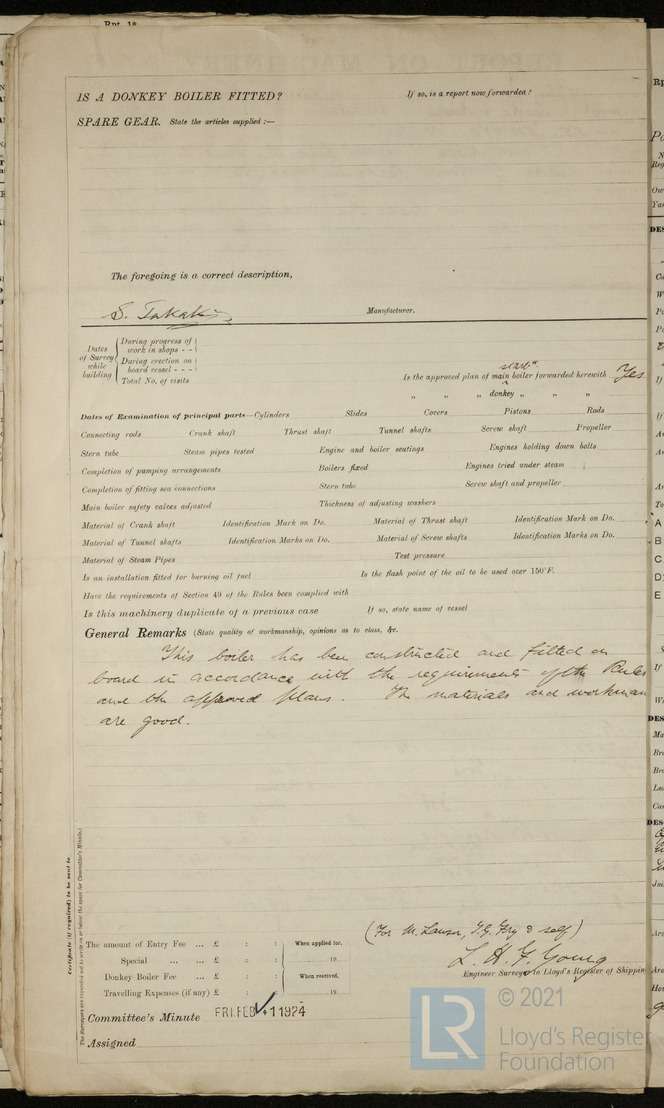 Rpt. 1*
IS A DONKEY BOILER FITTED? If so, is a report now forwarded?
SPARE GEAR. State the articles supplied :—
The foregoing is a correct description,
S. Takaki Manufacturer.
Dates of Survey while building
During progress of work in shops - -
During erection on board vessel - - -
Total No. of visits
Is the approved plan of main boiler forwarded herewith Yes
" " " donkey " " "
Dates of Examination of principal parts—Cylinders Slides Covers Pistons Rods
Connecting rods Crank shaft Thrust shaft Tunnel shafts Screw shaft Propeller
Stern tube Steam pipes tested Engine and boiler seatings Engines holding down bolts
Completion of pumping arrangements Boilers fixed Engines tried under steam
Completion of fitting sea connections Stern tube Screw shaft and propeller
Main boiler safety valves adjusted Thickness of adjusting washers
Material of Crank shaft Identification Mark on Do. Material of Thrust shaft Identification Mark on Do.
Material of Tunnel shafts Identification Marks on Do. Material of Screw shafts Identification Marks on Do.
Material of Steam Pipes Test pressure
Is an installation fitted for burning oil fuel Is the flash point of the oil to be used over 150°F.
Have the requirements of Section 49 of the Rules been complied with
Is this machinery duplicate of a previous case If so, state name of vessel
General Remarks (State quality of workmanship, opinions as to class, &c.
This boiler has been constructed and fitted on
board in accordance with the requirements of the Rules
and the approved plans. The materials and workman
are good.
Certificate (if required) to be sent to
The Surveyors are requested not to write on or below the space for Committee's Minute.)
(For M. Lawson, T.G. Fry & self)
L. H. F. Young
Engineer Surveyor to Lloyd's Register of Shipping
The amount of Entry Fee ... £ : : When applied for.
Special ... ... £ : : 19
Donkey Boiler Fee ... £ : : When received.
Travelling Expenses (if any) £ : : 19
Committee's Minute FRI. FEB 1 1924
Assigned
LR © 2021
Lloyd's Register
Foundation